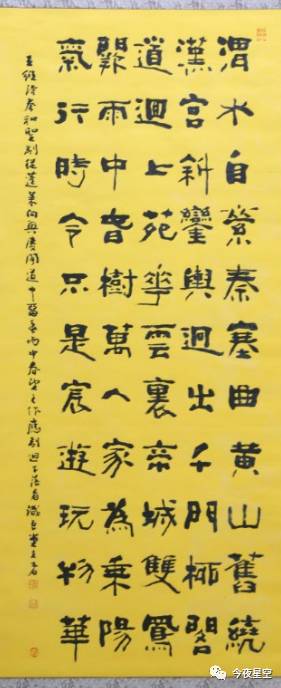 渭水自縈秦塞曲黄山舊繞
漢宮斜鑾輿迥出千門柳閣
道迴上苑華雲裏帝城雙鳳
闕雨中春樹萬人家為乘陽
氣行時令只是宸遊玩物華
王維詩奉和聖制從蓬萊向興慶閣道中留春雨中春望之作應制迴下落看
今夜星空